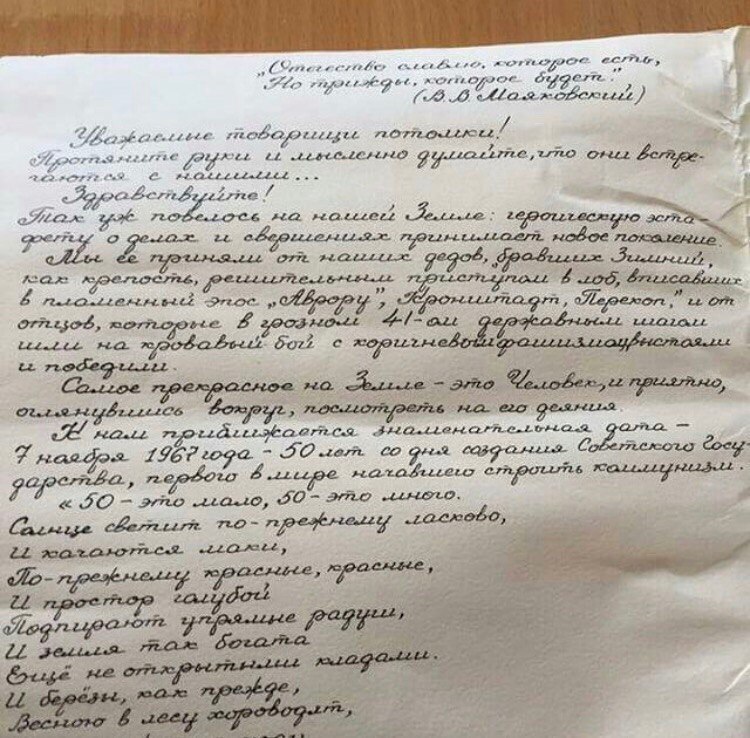 „Отечество славлю, которое есть,
Но трижды, которое будет".
(В.В Маяковский)
Уважаемые товарищи потомки!
Протяните руки и мысленно думайте, что они встре-
чаются с нашими...
Здравствуйте!
Так уж повелось на нашей Земле: героическую эста-
фету о делах и свершениях принимает новое поколение.
Мы её приняли от наших дедов, бравших Зимний,
как крепость, решительным приступом в лоб, вписавших
в пламенный эпос „Аврору", „Кронштадт, Перекоп," и от
отцов, которые в грозном 41-ом державным шагом
шли на кровавый бой с коричневым фашизмом, выстояли
и победили.
Самое прекрасное на Земле - это Человек, и приятно,
оглянувшись вокруг, посмотреть на его деяния.
К нам приближается знаменательная дата -
7 ноября 1967 года - 50 лет со дня создания Советского Госу-
дарства, первого в мире начавшего строить коммунизм.
« 50 - это мало, 50 - это много.
Солнце светит по-прежнему ласково,
И качаются маки,
По-прежнему красные, красные,
И простор голубой
Подпирают упрямые радуги,
И земля так богата
Ещё не открытыми кладами.
И берёзы, как прежде,
Весною в лесу хороводят,